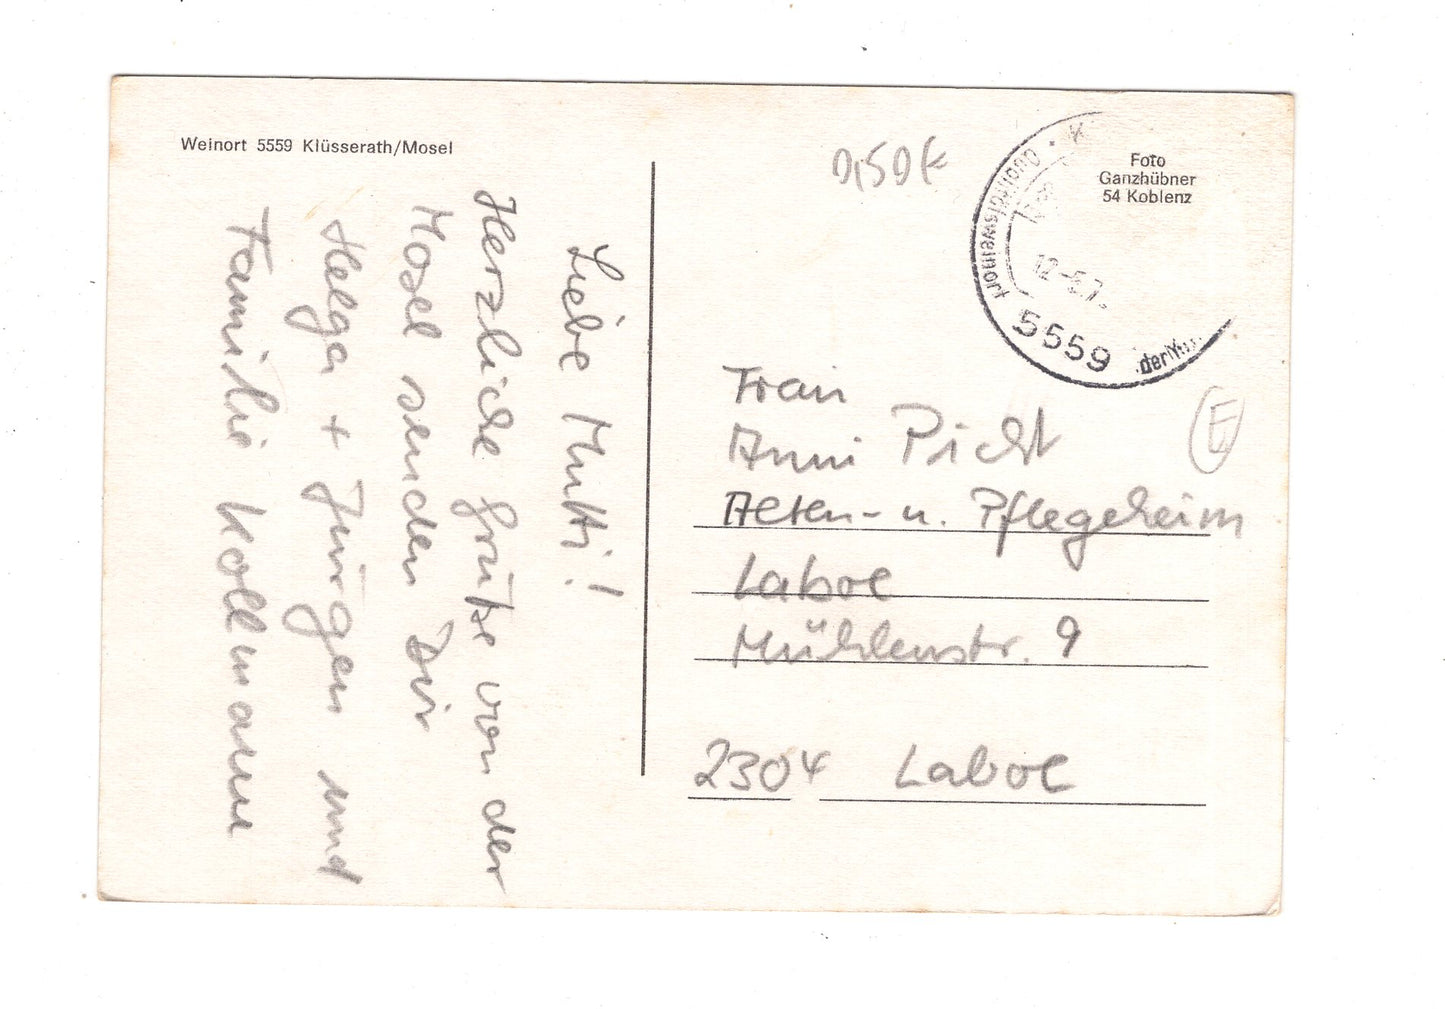 Weinort 5559 Klüsserath/Mosel
Liebe Mutti!
Herzliche Grüße von der
Mosel senden Dir
Helga + Jürgen und
Familie Kollmann
0,50 €
Foto
Ganzhübner
54 Koblenz
5559
E
Frau
Anni Picht
Alten- u. Pflegeheim
Laboe
Mühlenstr. 9
2304 Laboe